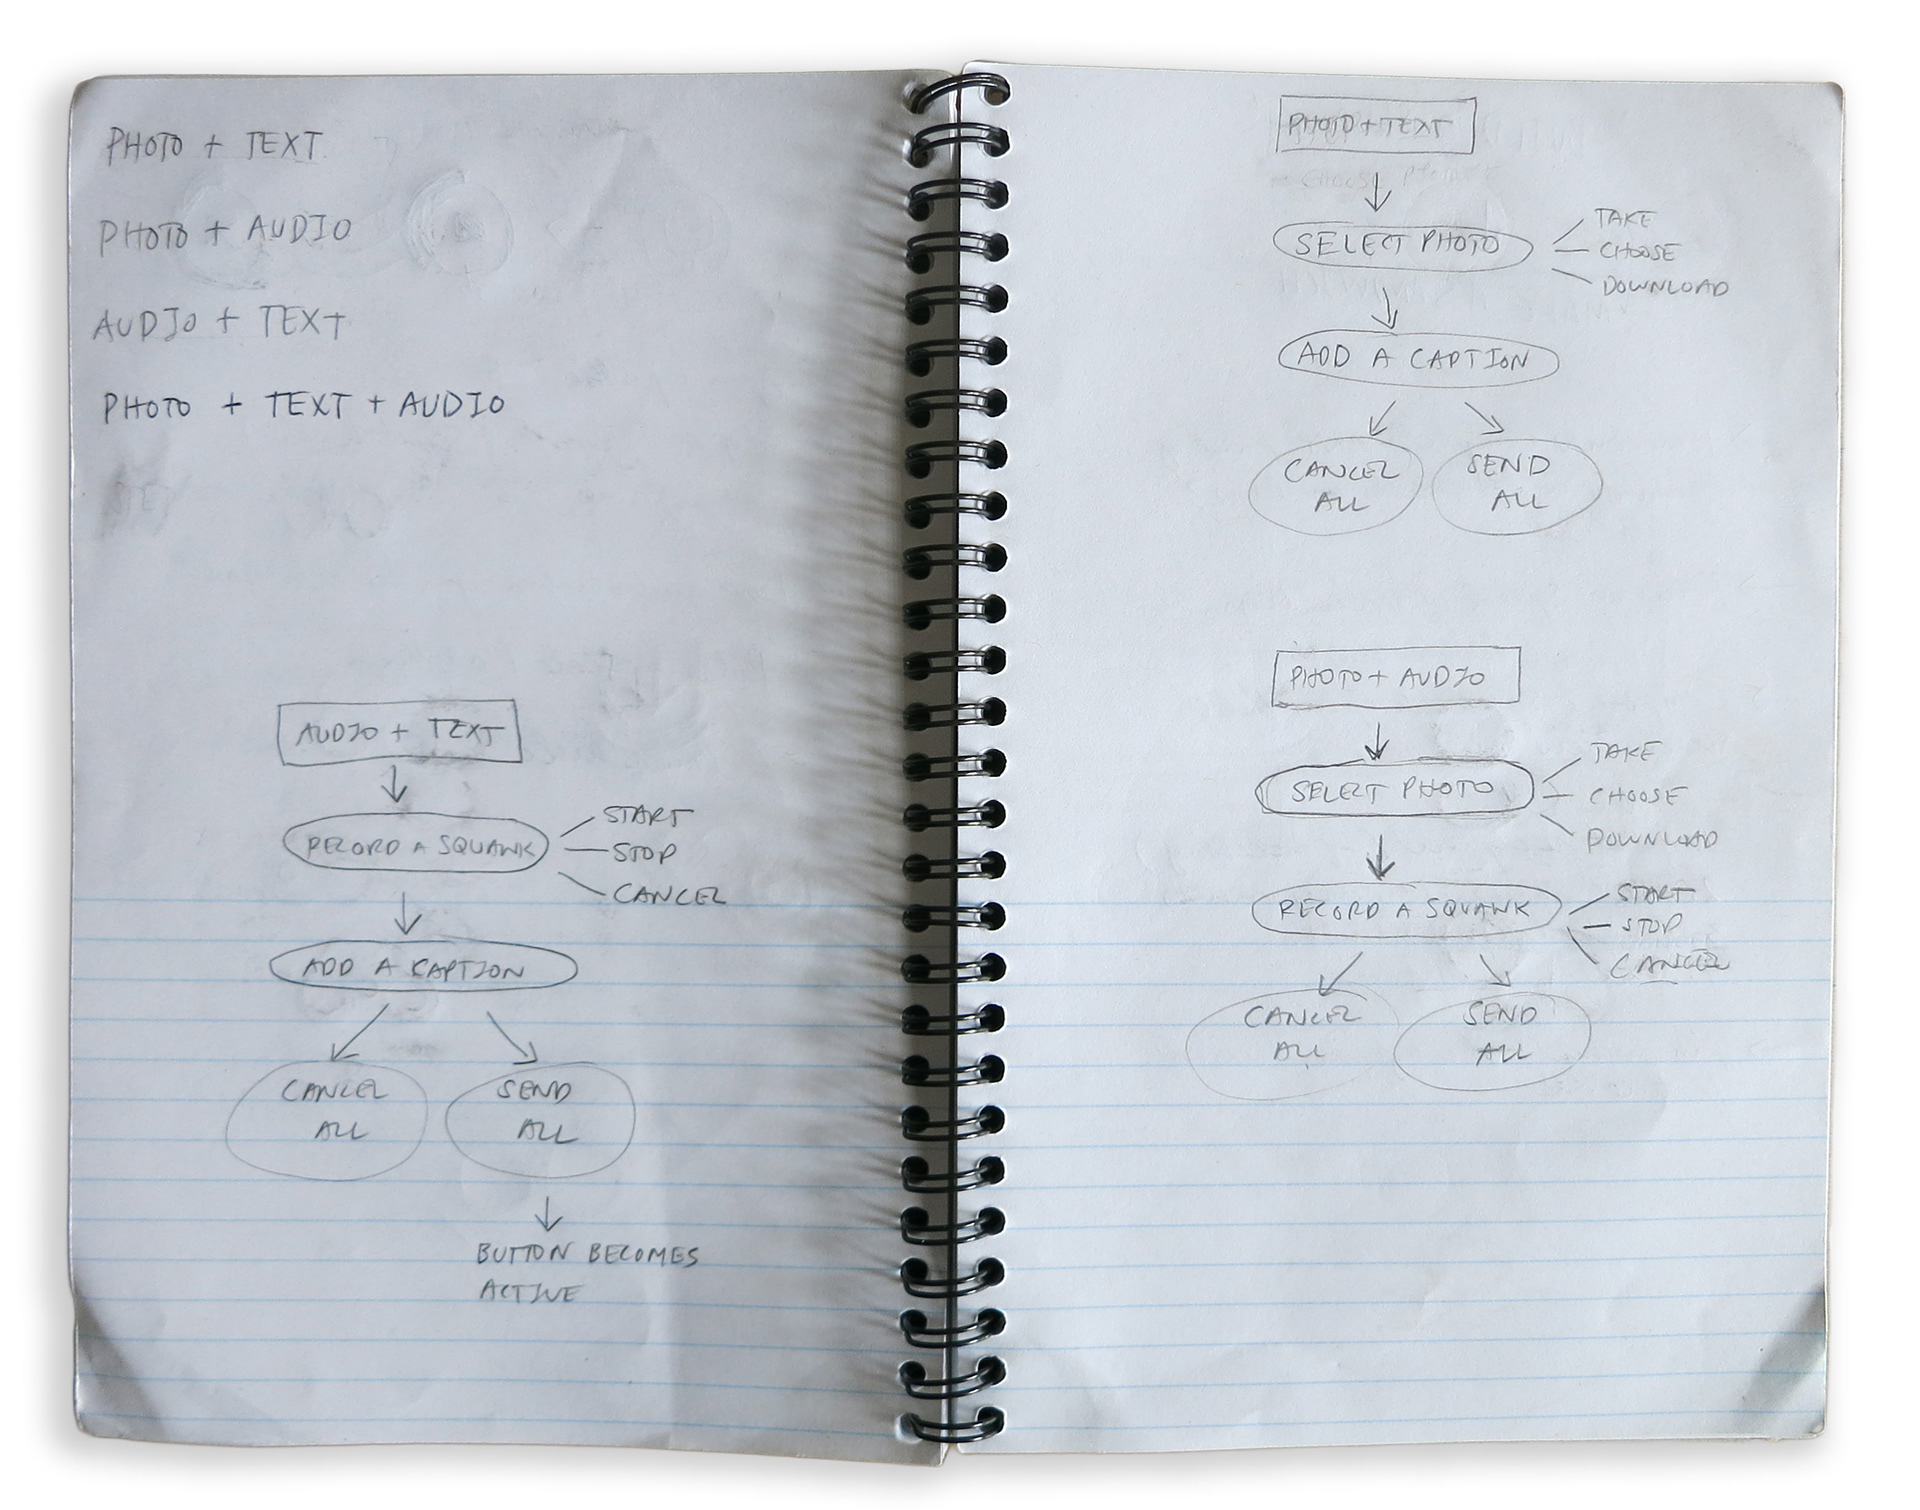 PHOTO + TEXT
PHOTO + AUDIO
AUDIO + TEXT
PHOTO + TEXT + AUDIO
AUDIO + TEXT
RECORD A SQUAWK
START
STOP
CANCEL
ADD A CAPTION
CANCEL
ALL
SEND
ALL
BUTTON BECOMES
ACTIVE
PHOTO + TEXT
SELECT PHOTO
TAKE
CHOOSE
DOWNLOAD
ADD A CAPTION
CANCEL
ALL
SEND
ALL
PHOTO + AUDIO
SELECT PHOTO
TAKE
CHOOSE
DOWNLOAD
RECORD A SQUAWK
START
STOP
CANCEL
CANCEL
ALL
SEND
ALL